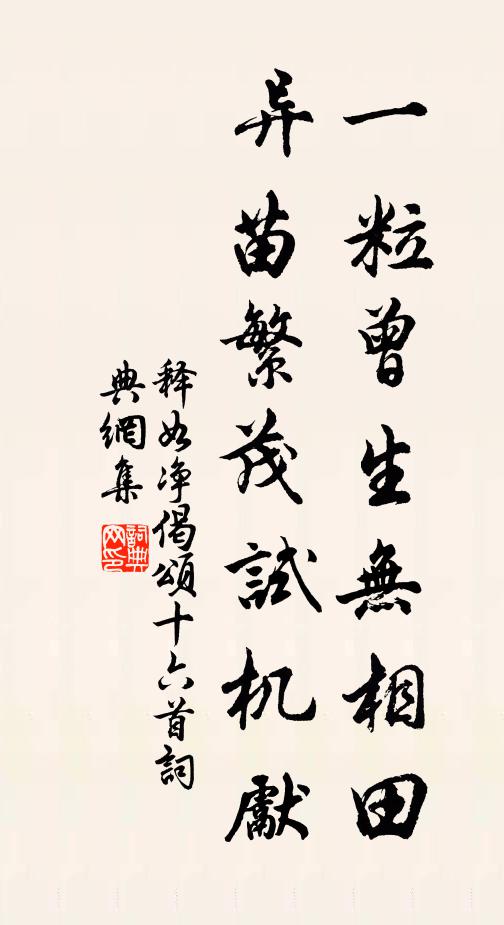 一粒曾生無相田
异苗繁茂試机獻
释如净偈頌十六首詞
典網集
詞典
网印